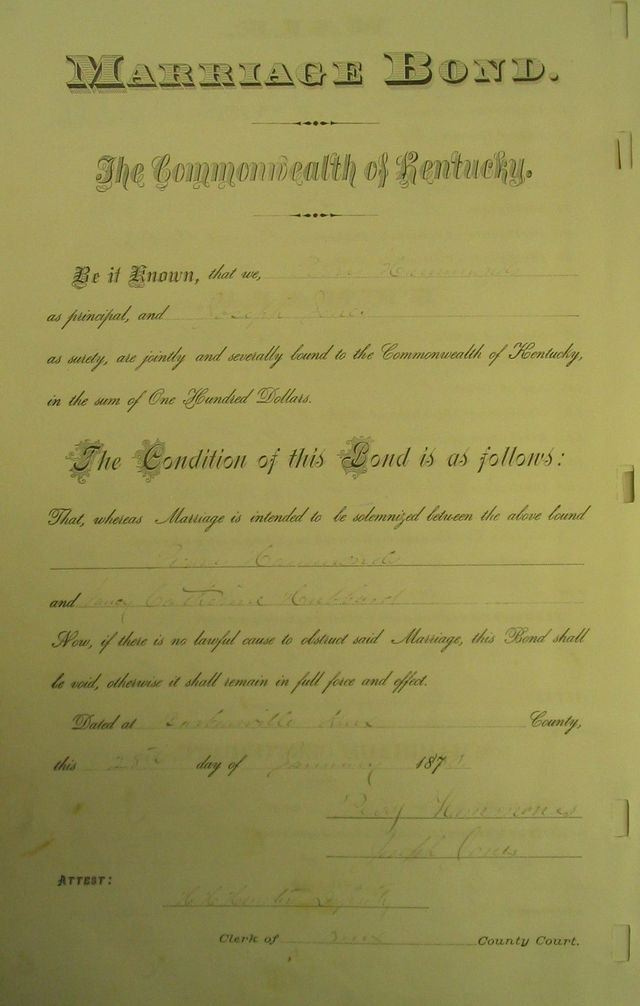 MARRIAGE BOND.
The Commonwealth of Kentucky.
Be it Known, that we, Hammonds
as principal, and Joseph
as surety, are jointly and severally bound to the Commonwealth of Kentucky,
in the sum of One Hundred Dollars.
The Condition of this Bond is as follows:
That, whereas Marriage is intended to be solemnized between the above bound
Hammonds
and Nancy Catherine Hubbard
Now, if there is no lawful cause to obstruct said Marriage, this Bond shall
be void, otherwise it shall remain in full force and effect.
Dated at Barbourville Knox County,
this 28th day of January 187
Hammonds
Joseph
ATTEST:
Clerk of Knox County Court.